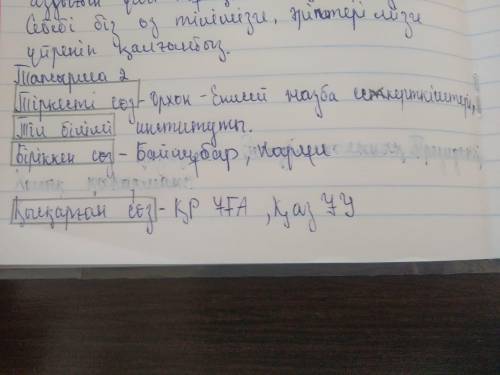 Себебі біз өз тілімізги, әріптері
үйреніп қалғамбыз.
Тапсырма 2
Тіркесті сөз - Орхон - Енисей жазба ескерткіштері,
Тіл білімі институты.
Біріккен сөз - Байтұғыр,
Қысқарған сөз - ҚР ҰҒА , Қаз ҰУ